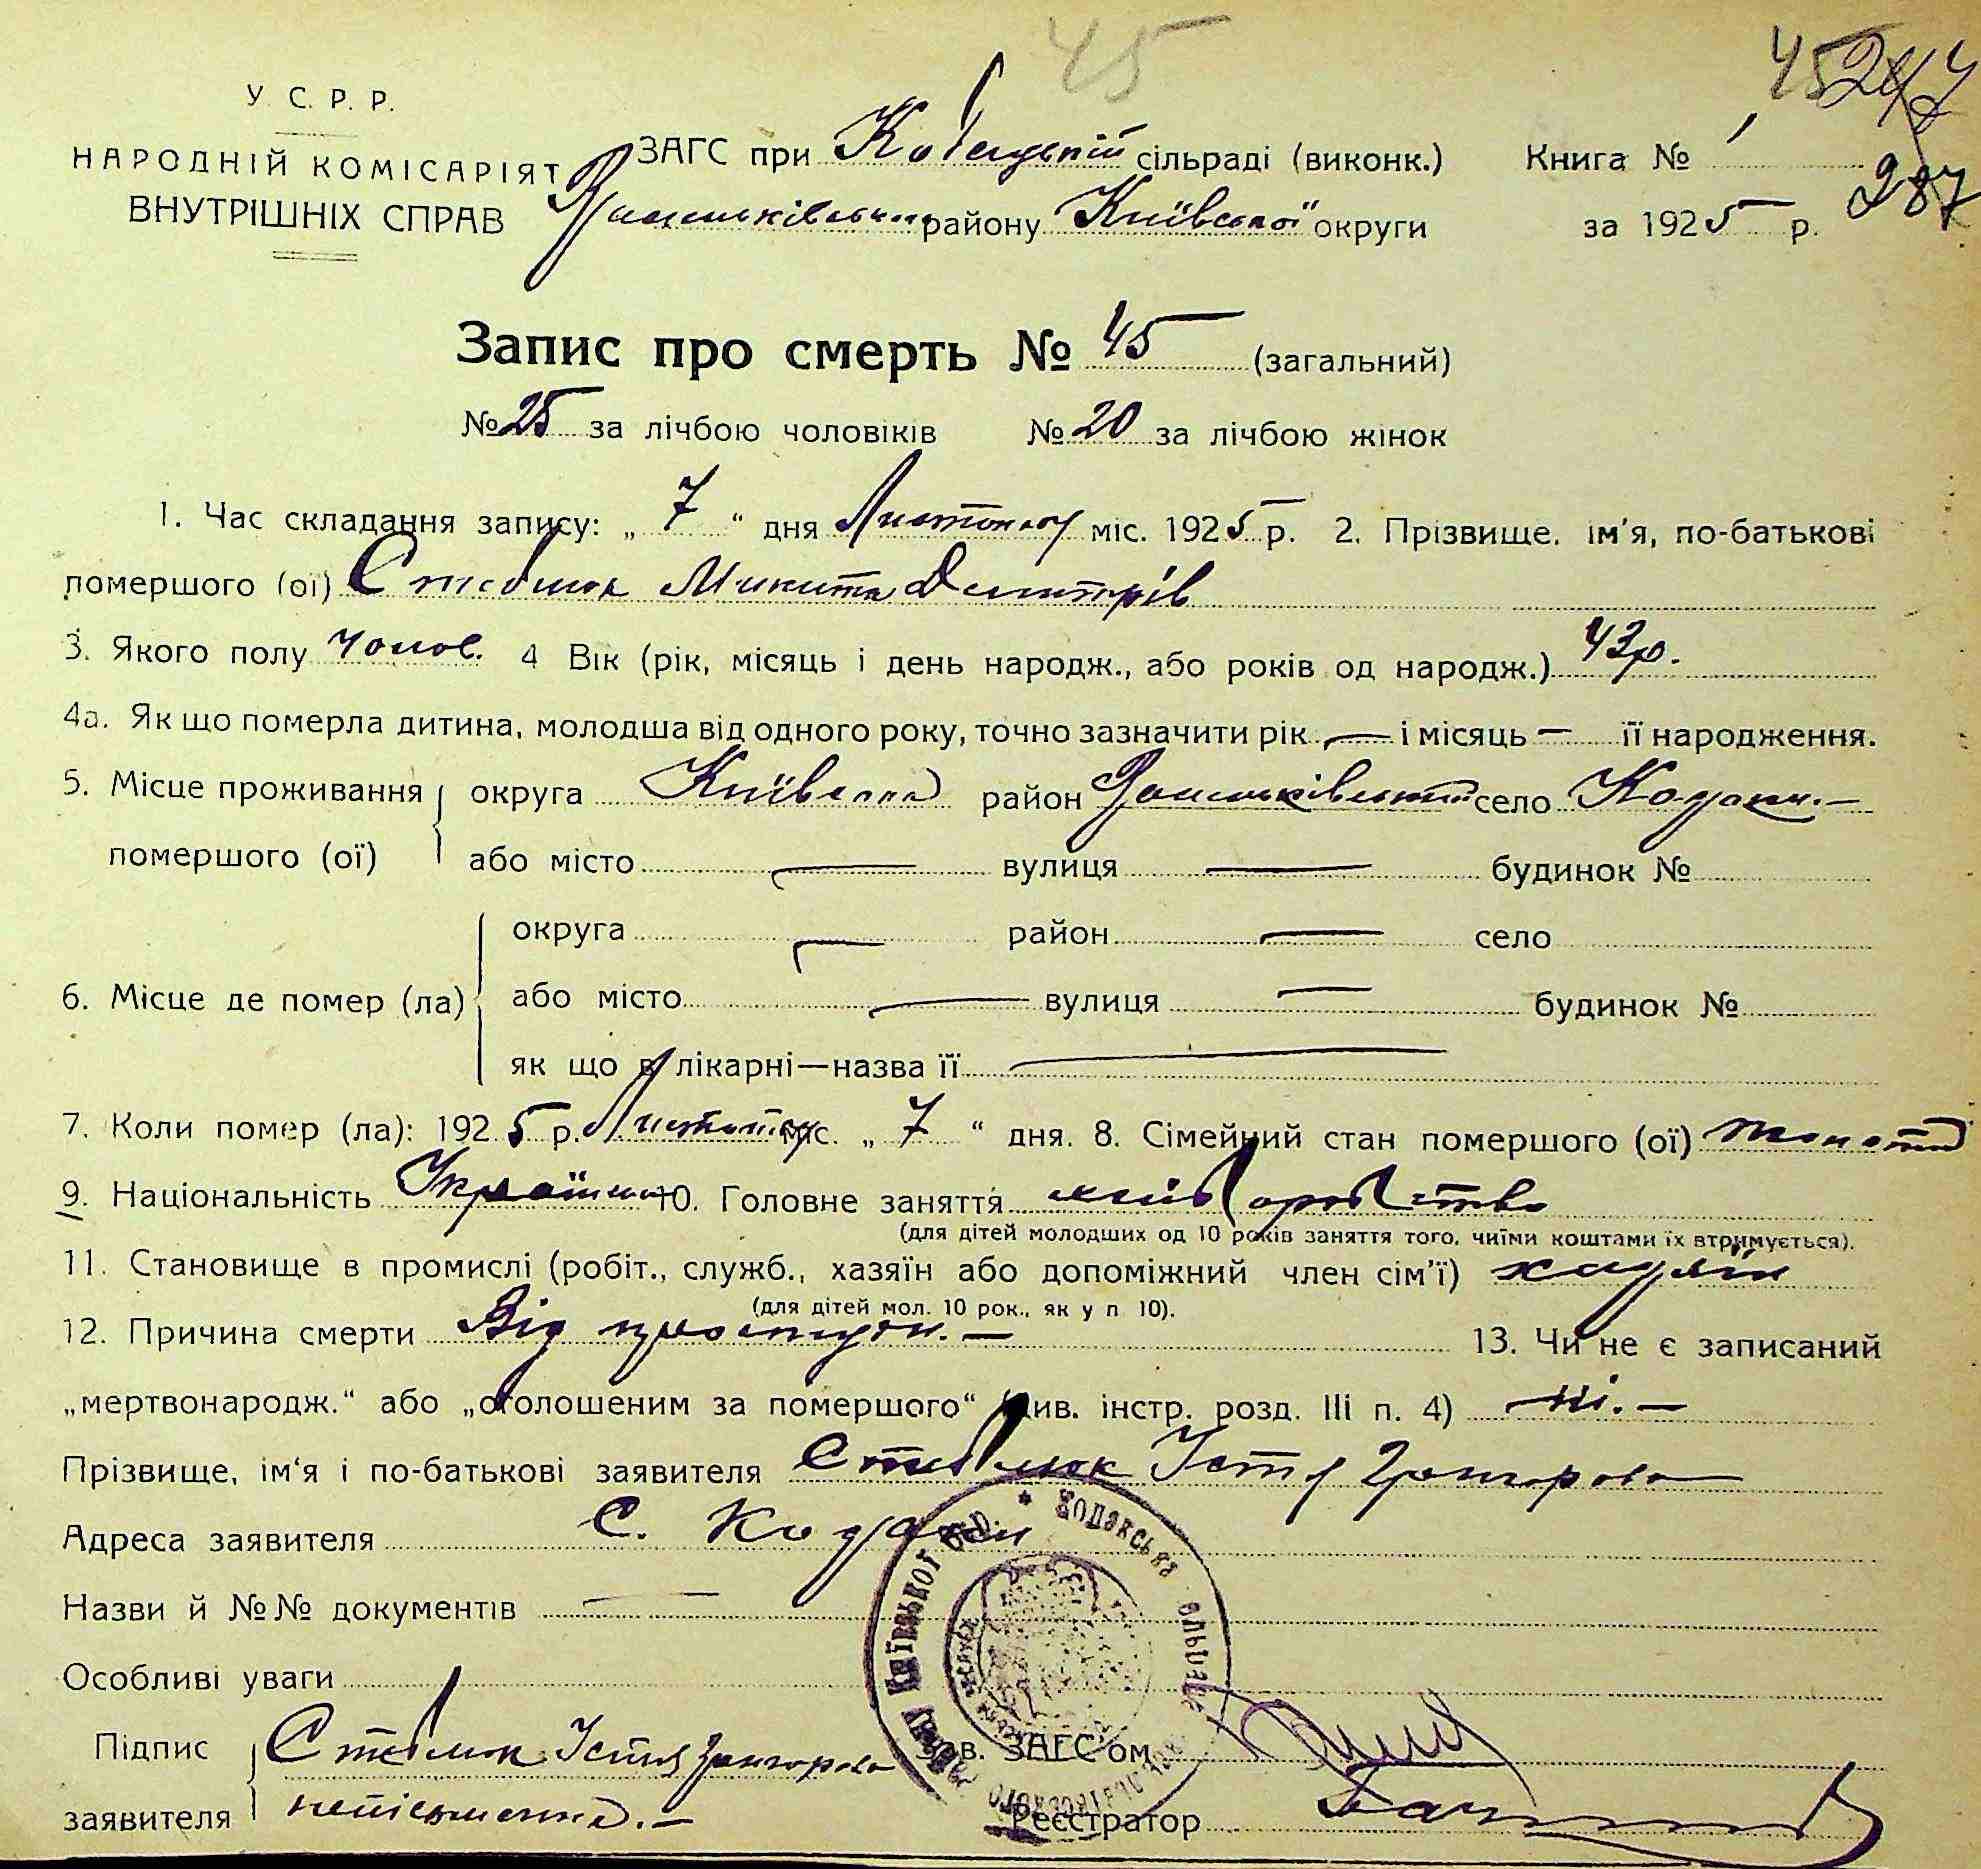 45
45 247
У. С. Р. Р.
НАРОДНІЙ КОМІСАРІЯТ
ВНУТРІШНІХ СПРАВ
ЗАГС при Кодацькій сільраді (виконк.) Книга № 1
району Київської округи за 1925 р. 287
Запис про смерть № 45 (загальний)
№ 25 за лічбою чоловіків № 20 за лічбою жінок
1. Час складання запису: „ 7 “ дня Листопаду міс. 1925 р. 2. Прізвище, ім'я, по-батькові
помершого (ої) Стеблюк Микита Дмитрів
3. Якого полу чолов. 4 Вік (рік, місяць і день народж., або років од народж.) 43 р.
4а. Як що померла дитина, молодша від одного року, точно зазначити рік — і місяць — її народження.
5. Місце проживання помершого (ої) округа Київська район село Кодаки. —
або місто — вулиця — будинок №
6. Місце де помер (ла) округа — район — село
або місто — вулиця — будинок №
як що в лікарні—назва її —
7. Коли помер (ла): 1925 р. Листопаду міс. „ 7 “ дня. 8. Сімейний стан помершого (ої) жонатий
9. Національність Українець 10. Головне заняття хліборобство
(для дітей молодших од 10 років заняття того, чиїми коштами їх втримується).
11. Становище в промислі (робіт., служб., хазяїн або допоміжний член сім'ї) хазяїн
(для дітей мол. 10 рок., як у п 10).
12. Причина смерти Від простуди. — 13. Чи не є записаний
„мертвонародж.“ або „оголошеним за помершого“ (див. інстр. розд. III п. 4) ні. —
Прізвище, ім'я і по-батькові заявителя Стеблюк Устя Григорова
Адреса заявителя С. Кодаки
Назви й №№ документів — —
Особливі уваги
Підпис заявителя Стеблюк Устя Григорова
неписьменна. —
Зав. ЗАГС'ом
Реєстратор
Кодакська сільрада Київської